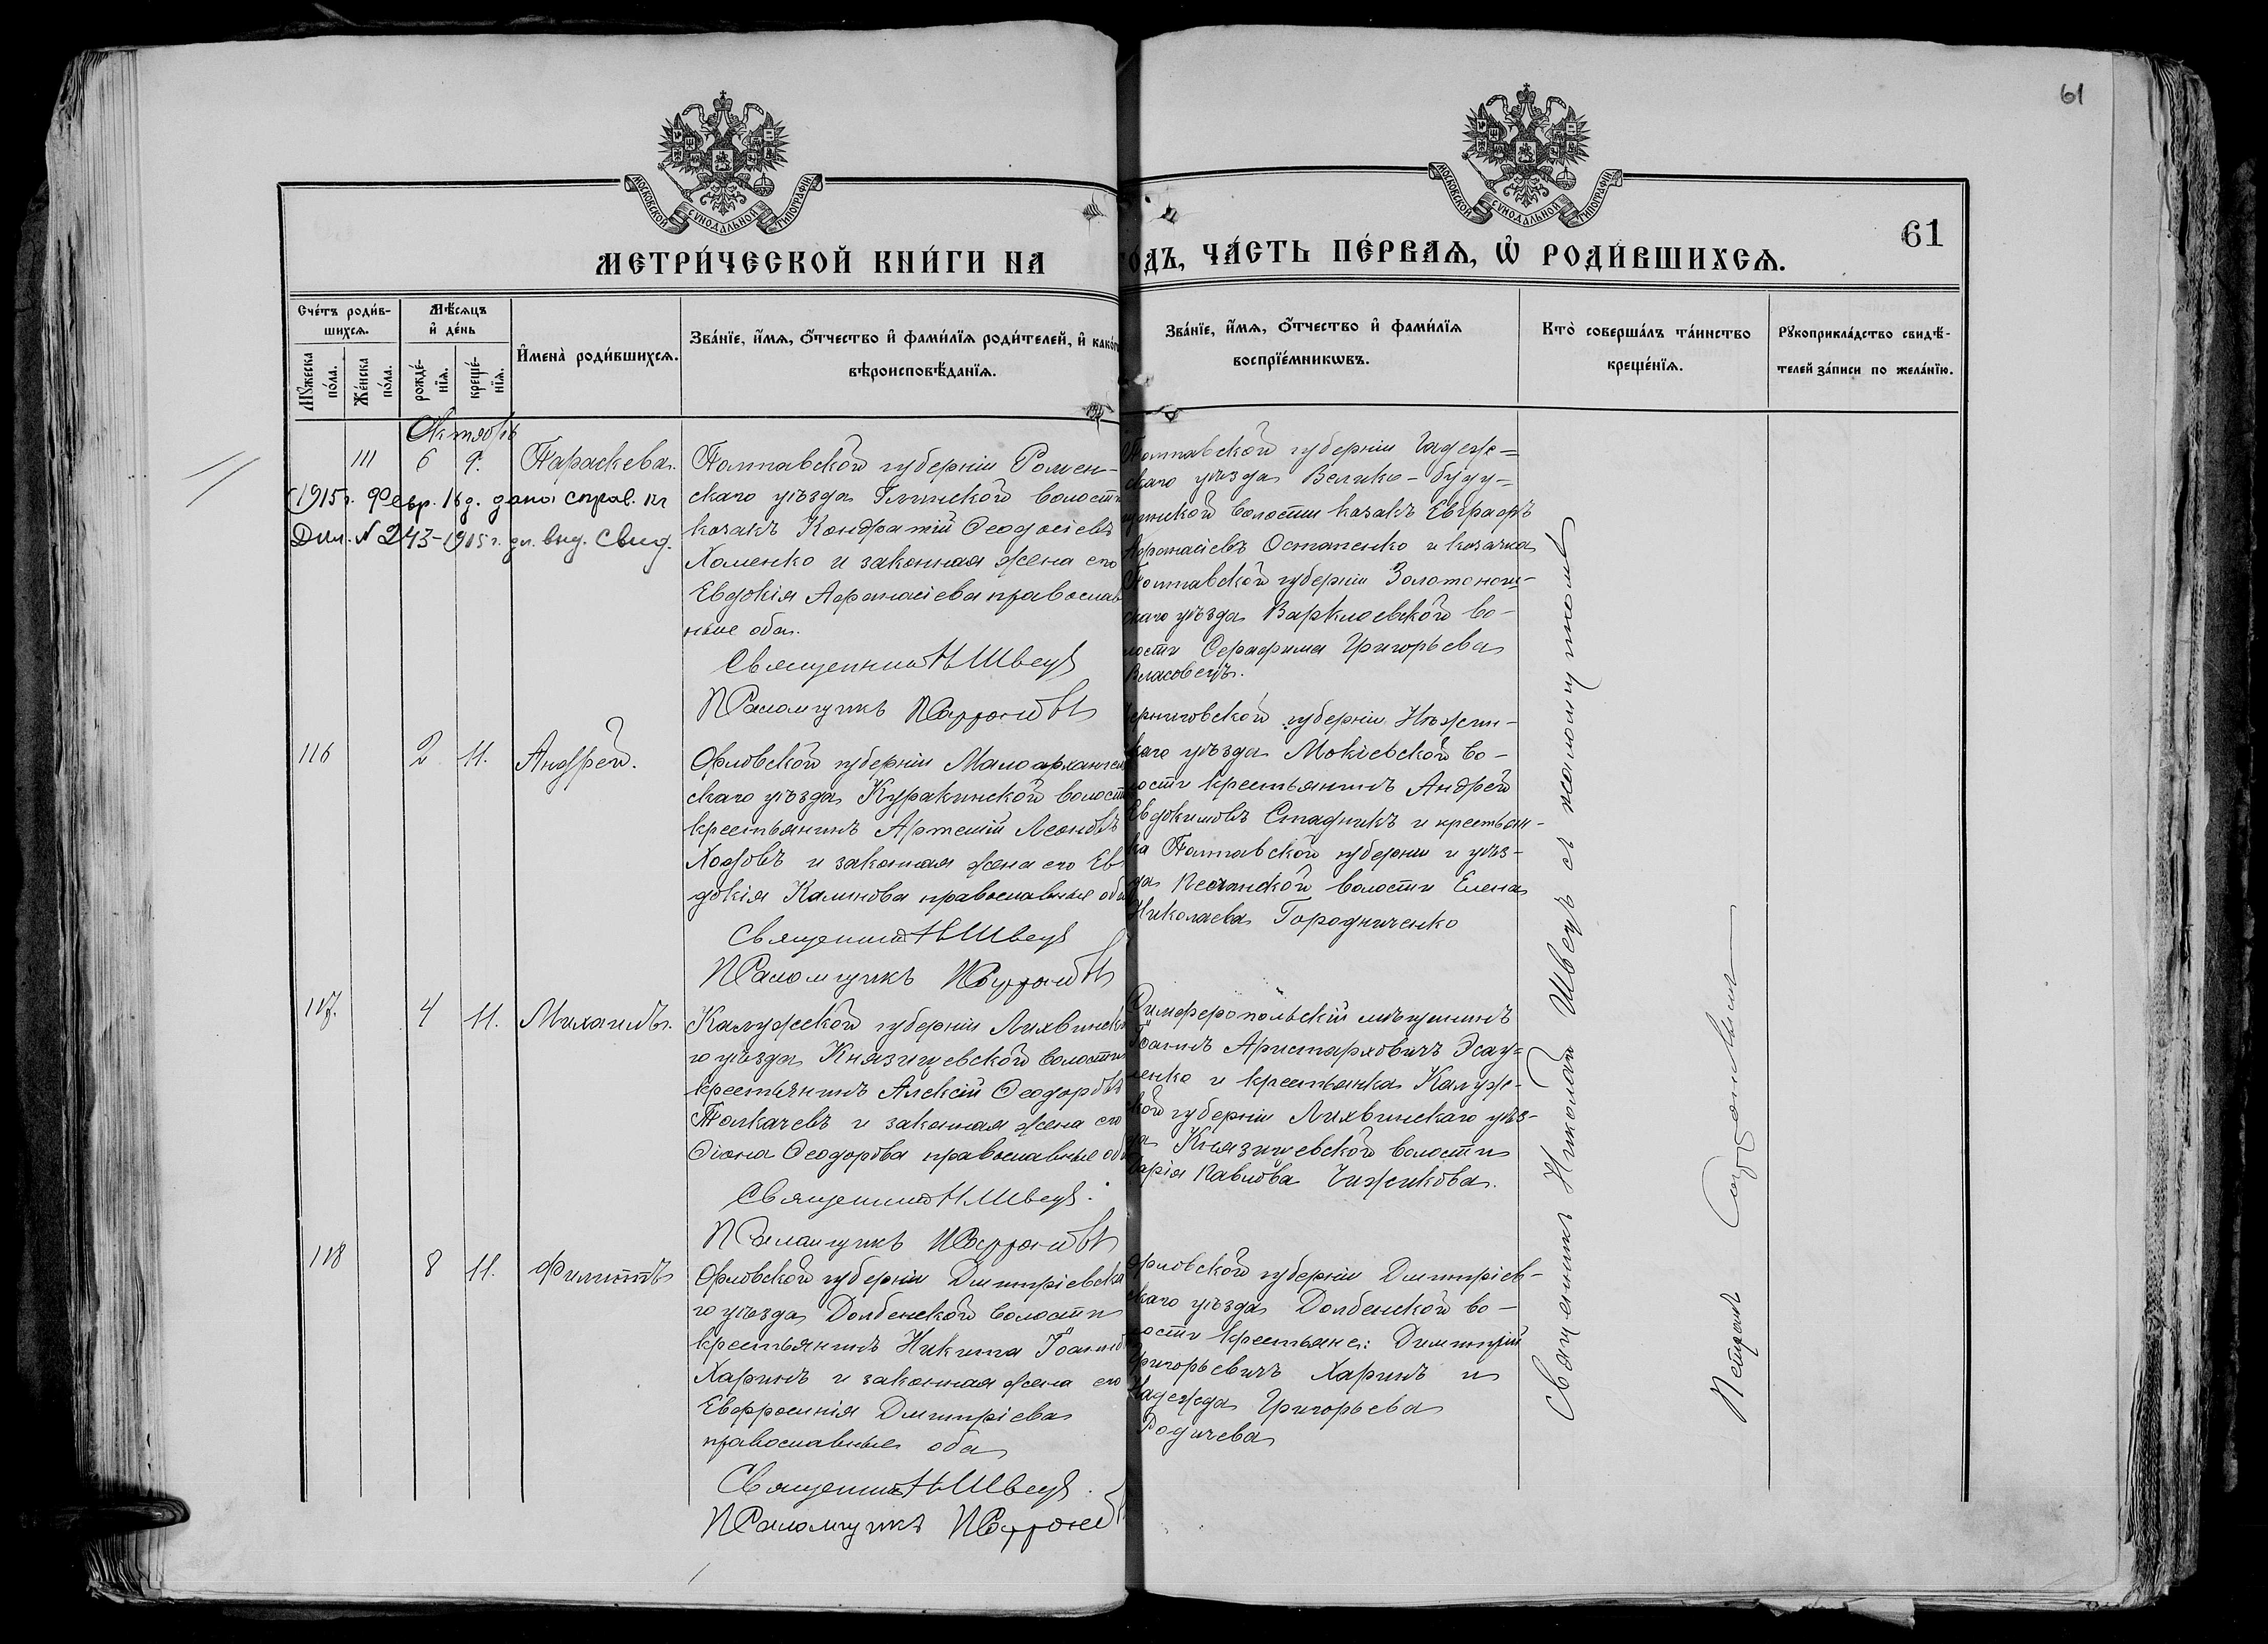 61
МОСКОВСКОЙ СѴНОДАЛЬНОЙ ТИПОГРАФІИ
МОСКОВСКОЙ СѴНОДАЛЬНОЙ ТИПОГРАФІИ
61
МЕТРИ́ЧЕСКОЙ КНИ́ГИ НА
ОДЪ, ЧА́СТЬ ПЕ́РВАѦ, Ѡ҆ РОДИ́ВШИХСѦ.
Сче́тъ роди́в-
шихсѧ.
Мꙋ́жеска по́ла.
Же́нска по́ла.
Мѣ́сѧцъ
и҆ де́нь
рожде́-
нїѧ.
креще́-
нїѧ.
И҆мена̀ роди́вшихсѧ.
Зва́нїе, и҆́мѧ, ѻ҆́тчество и҆ фами́лїѧ роди́телей, и҆ како́г
вѣроисповѣ́данїѧ.
Зва́нїе, и҆́мѧ, ѻ҆́тчество и҆ фами́лїѧ
воспрїе́мникѡвъ.
Кто̀ соверша́лъ та́инство
креще́нїѧ.
Рꙋкоприкла́дство свидѣ́-
телей за́писи по жела́нїю.
Октябрь
111 6 9. Параскева.
(1915 г. Февр. 16 д. дана справ. къ
Дѣл. № 243-1915 г. дл. выд. Свид.
Полтавской губерніи Ромен-
скаго уѣзда Глинской волости
козакъ Кондратій Ѳеодосіевъ
Хоменко и законная жена его
Евдокія Аѳанасіева православ
ные оба.
Священникъ Н Швецъ
Псаломщикъ
Полтавской губерніи Гадяч-
скаго уѣзда Велико-Буди-
щинской волости козакъ Евграфъ
Аѳанасіевъ Остапенко и козачка
Полтавской губерніи Золотонош-
скаго уѣзда Вартлоевской во-
лости Серафима Григорьева
Власовецъ.
116 2 11. Андрей.
Орловской губерніи Малоархангел
скаго уѣзда Куракинской волости
крестьянинъ Артемій Леоновъ
Ходовъ и законная жена его Ев
докія Калинова православные оба
Священникъ Н Швецъ
Псаломщикъ
Черниговской губерніи Нѣжин-
скаго уѣзда Мокіевской во-
лости крестьянинъ Андрей
Евдокимовъ Стадникъ и крестьян-
ка Полтавской губерніи и уѣз-
да Песчанской волости Елена
Николаева Городниченко
117. 4 11. Михаилъ.
Калужской губерніи Лихвинска
го уѣзда Князищевской волости
крестьянинъ Алексій Ѳеодоровъ
Толкачевъ и законная жена его
Ѳіона Ѳеодорова православные об
Священникъ Н Швецъ.
Псаломщикъ
Симферопольскій мѣщанинъ
Іоаннъ Аристарховичъ Эсау-
ленко и крестьянка Калуж-
кой губерніи Лихвинскаго уѣз-
да Князищевской волости
Марія Павлова Чижикова.
118 8 11. Филиппъ
Орловской губерніи Дмитріевска
го уѣзда Долбенской волости
крестьянинъ Никита Іоанновъ
Харинъ и законная жена его
Евфросинія Дмитріева
православные оба
Священникъ Н Швецъ.
Псаломщикъ
Орловской губерніи Дмитріев-
скаго уѣзда Долбенской во-
лости крестьяне: Димитрій
Григорьевичъ Харинъ и
Надежда Григорьева
Родичева
Священникъ Николай Швецъ съ псаломщикомъ